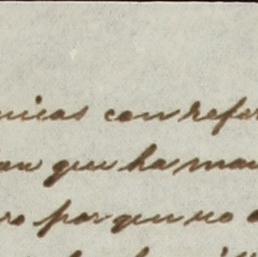 nicas con refer
an que ha man
ro por que no